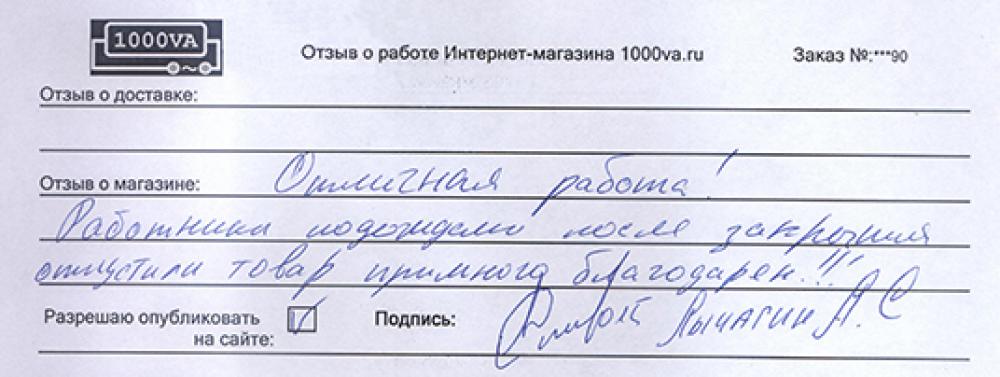 1000VA
Отзыв о работе Интернет-магазина 1000va.ru
Заказ №:***90
Отзыв о доставке:
Отзыв о магазине: Отличная работа!
Работники подождали после закрытия
отпустили товар примного благодарен!!!
Разрешаю опубликовать
на сайте:
Подпись: Лычагин А.С